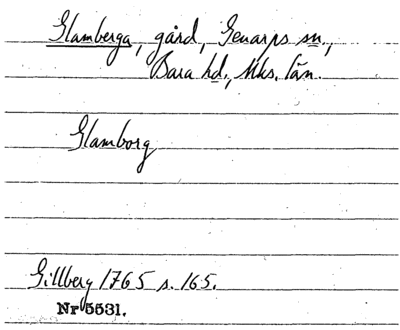 Glamberga, gård, Genarps sn.,
Bara hd., Mks. län.
Glamborg
Gillberg 1765 s. 165.
Nr 5531.